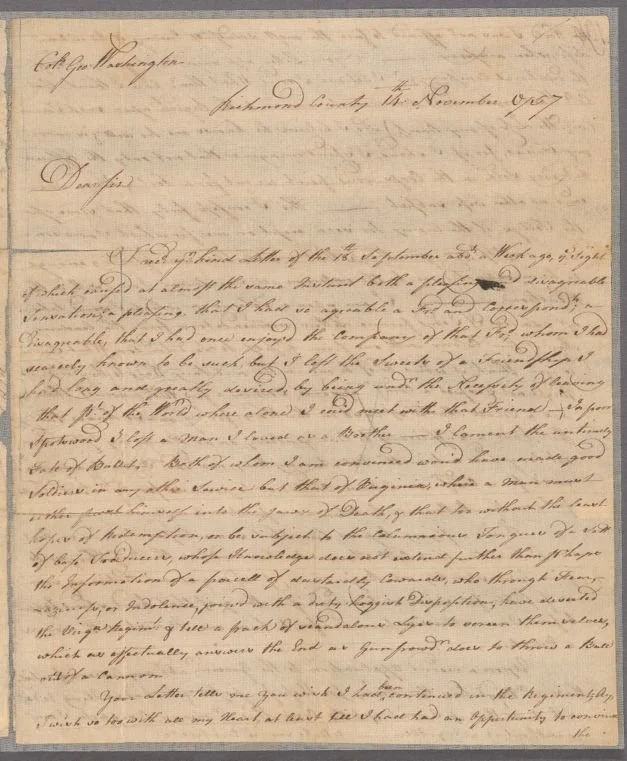 Colo. Geo Washington
Richmond County 14th November 1757
Dear Sir
I recd yr. kind Letter of the 18th September abt. a Week ago, ye Sight
of which caused at almost the same Instant both a pleasing and disagreable
Sensation; a pleasing that I had so agreable a Frd. and Correspondt., a
Disagreable, that I had once enjoy'd the Company of that Frd. whom I had
scarcely known to be such but I lost the Sweets of a Friendship I
had long and greatly desired, by being undr. the Necessity of leaving
that Pt. of the World where alone I cou'd meet with that Friend — In poor
Spotswood I lost a Man I loved as a Brother — I lament the untimely
Fate of Bullet. Both of whom I am convinced wou'd have made good
Soldiers in any other Service but that of Virginia, where a Man must
either push himself into the Jaws of Death, & that too without the least
hopes of Redemption, or be subject to the Calumnious Tongues of a Sett
of base whose Knowledge does not extend further than perhaps
the Information of a parcell of dastardly Cowards, who through Fear,
Laziness, or Indolence, join'd with a dirty Disposition, have deserted
the Virga. Regimt. & tell a pack of scandalous Lyes to screen themselves,
which as effectually answers the End as Gunpowdr. does to throw a Ball
out of a Cannon
Your Letter tells me You wish I had been continued in the Regiment; Ay,
I wish so too with all my Heart, at least till I had had an Opportunity to convince
the